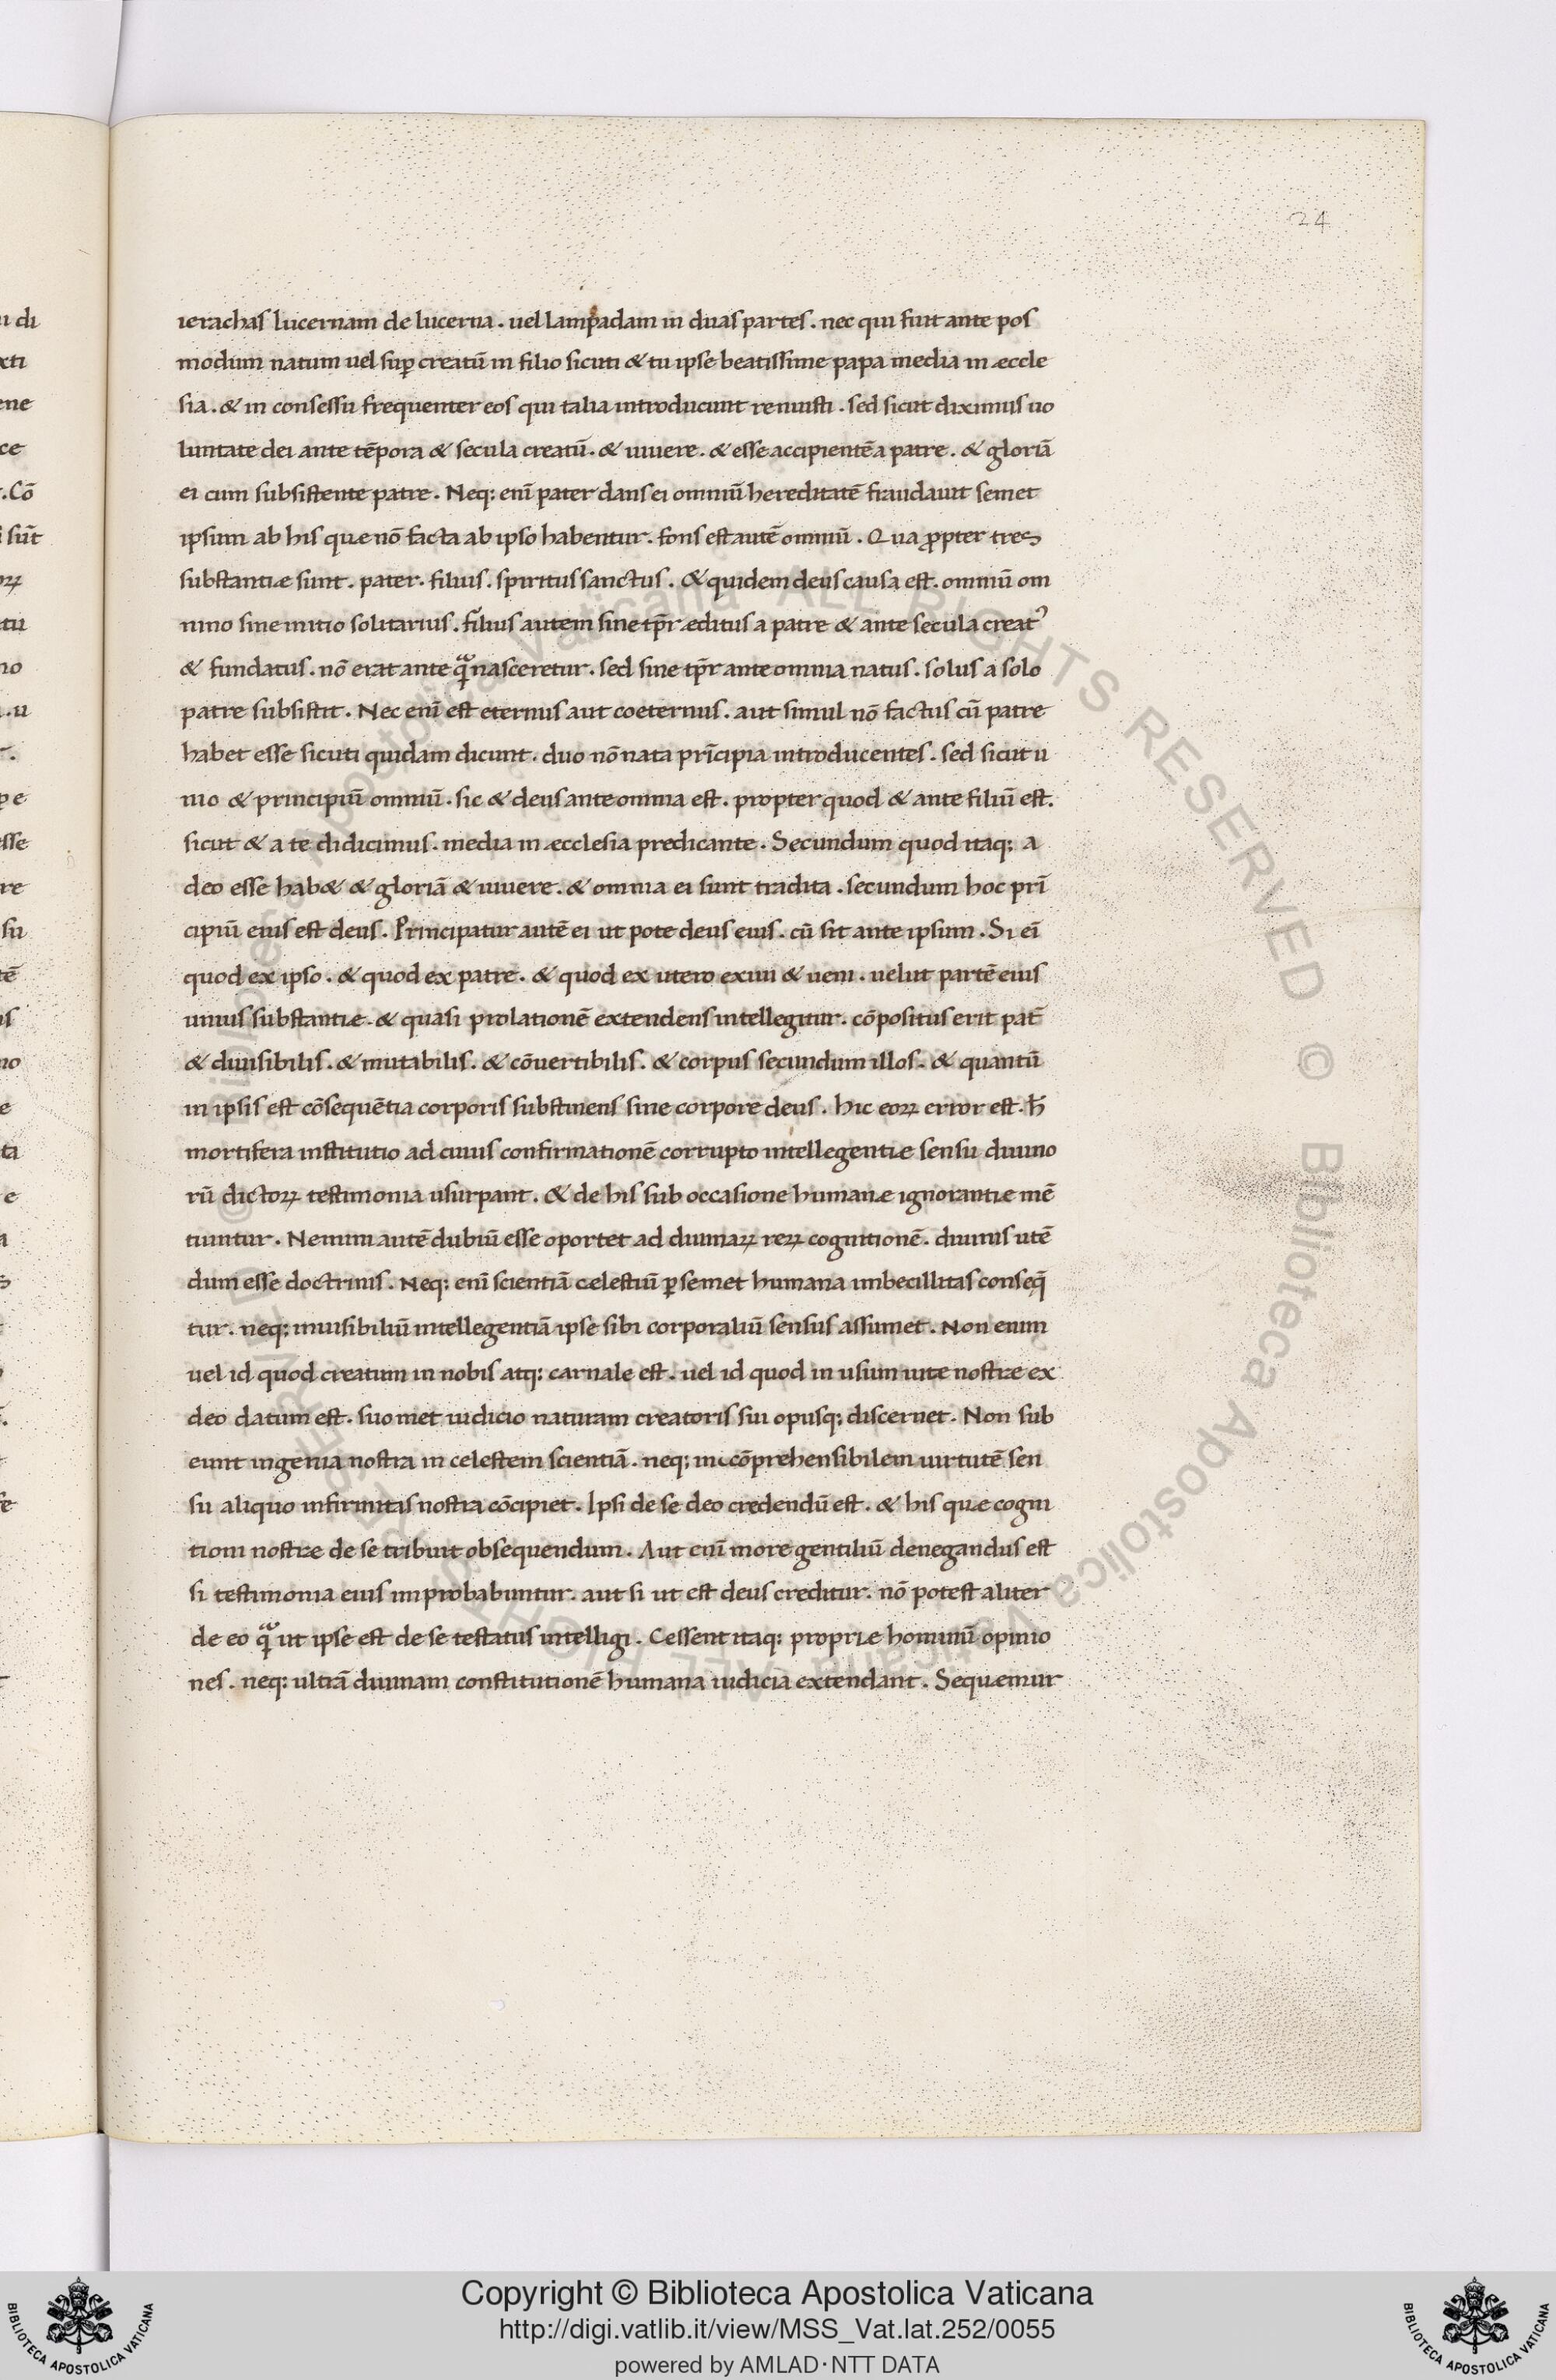 24
ierachas lucernam de lucerna . uel lampadam in duas partes . nec qui fuit ante pos
modum natum uel sup̱ creatū in filio sicuti & tu ipse beatissime papa media in æccle
sia . & in consessu frequenter eos qui talia introducunt renuisti . sed sicut diximus uo
luntate dei ante tēpora & secula creatū . & uiuere . & esse accipientē a patre . & gloriā
ei cum subsistente patre . Neq; enī pater dans ei omniū hereditatē fraudauit semet
ipsum ab his que nō facta ab ipso habentur . fons est autē omniū . Qua ꝓpter tres
substantiæ sunt . pater . filius . spiritus sanctus . & quidem deus causa est . omniū om
nino sine initio solitarius . filius autem sine tp̄r æditus a patre & ante secula creatꝰ
& fundatus . nō erat ante qͣ̄ nasceretur . sed sine tp̄r ante omnia natus . solus a solo
patre subsistit . Nec enī est eternus aut coeternus . aut simul nō factus cū patre
habet esse sicuti quidam dicunt . duo nō nata prīcipia introducentes . sed sicut u
nio & principiū omniū . sic & deus ante omnia est . propter quod & ante filiū est .
sicut & a te didicimus . media in æcclesia predicante . Secundum quod itaq; a
deo esse hab& & gloriā & uiuere . & omnia ei sunt tradita . secundum hoc prī
cipiū eius est deus . Principatur autē ei ut pote deus eius . cū sit ante ipsum . Si eī
quod ex ipso . & quod ex patre . & quod ex utero exiui & ueni . uelut partē eius
unius substantiæ . & quasi prolationē extendens intellegitur . cōpositus erit pat̄
& diuisibilis . & mutabilis . & cōuertibilis . & corpus secundum illos . & quantū
in ipsis est cōsequētia corporis substinens sine corpore deus . hic eoꝝ error est . h̄
mortifera institutio ad cuius confirmationē corrupto intellegentiæ sensu diuino
rū dictoꝝ testimonia usurpant . & de his sub occasione humanæ ignorantiæ mē
tiuntur . Nemini autē dubiū esse oportet ad diuinaꝝ reꝝ cognitionē . diuinis utē
dum esse doctrinis . Neq; enī scientiā celestiū ꝑ semet humana imbecillitas conseq̄
tur . neq; inuisibiliū intellegentiā ipse sibi corporaliū sensus assumet . Non enim
uel id quod creatum in nobis atq; carnale est . uel id quod in usum uite nostre ex
deo datum est . suo met iudicio naturam creatoris sui opusq; discernet . Non sub
eunt ingenia nostra in celestem scientiā . neq; in cōprehensibilem uirtutē sen
su aliquo infirmitas nostra cōcipiet . Ipsi de se deo credendū est . & his quæ cogni
tioni nostre de se tribuit obsequendum . Aut enī more gentiliū denegandus est
si testimonia eius improbabuntur . aut si ut est deus creditur . nō potest aliter
de eo qͣ̄ ut ipse est de se testatus intelligi . Cessent itaq; propriæ hominū opinio
nes . neq; ultrā diuinam constitutionē humana iudicia extendant . Sequemur
Copyright © Biblioteca Apostolica Vaticana
http://digi.vatlib.it/view/MSS_Vat.lat.252/0055
powered by AMLAD·NTT DATA